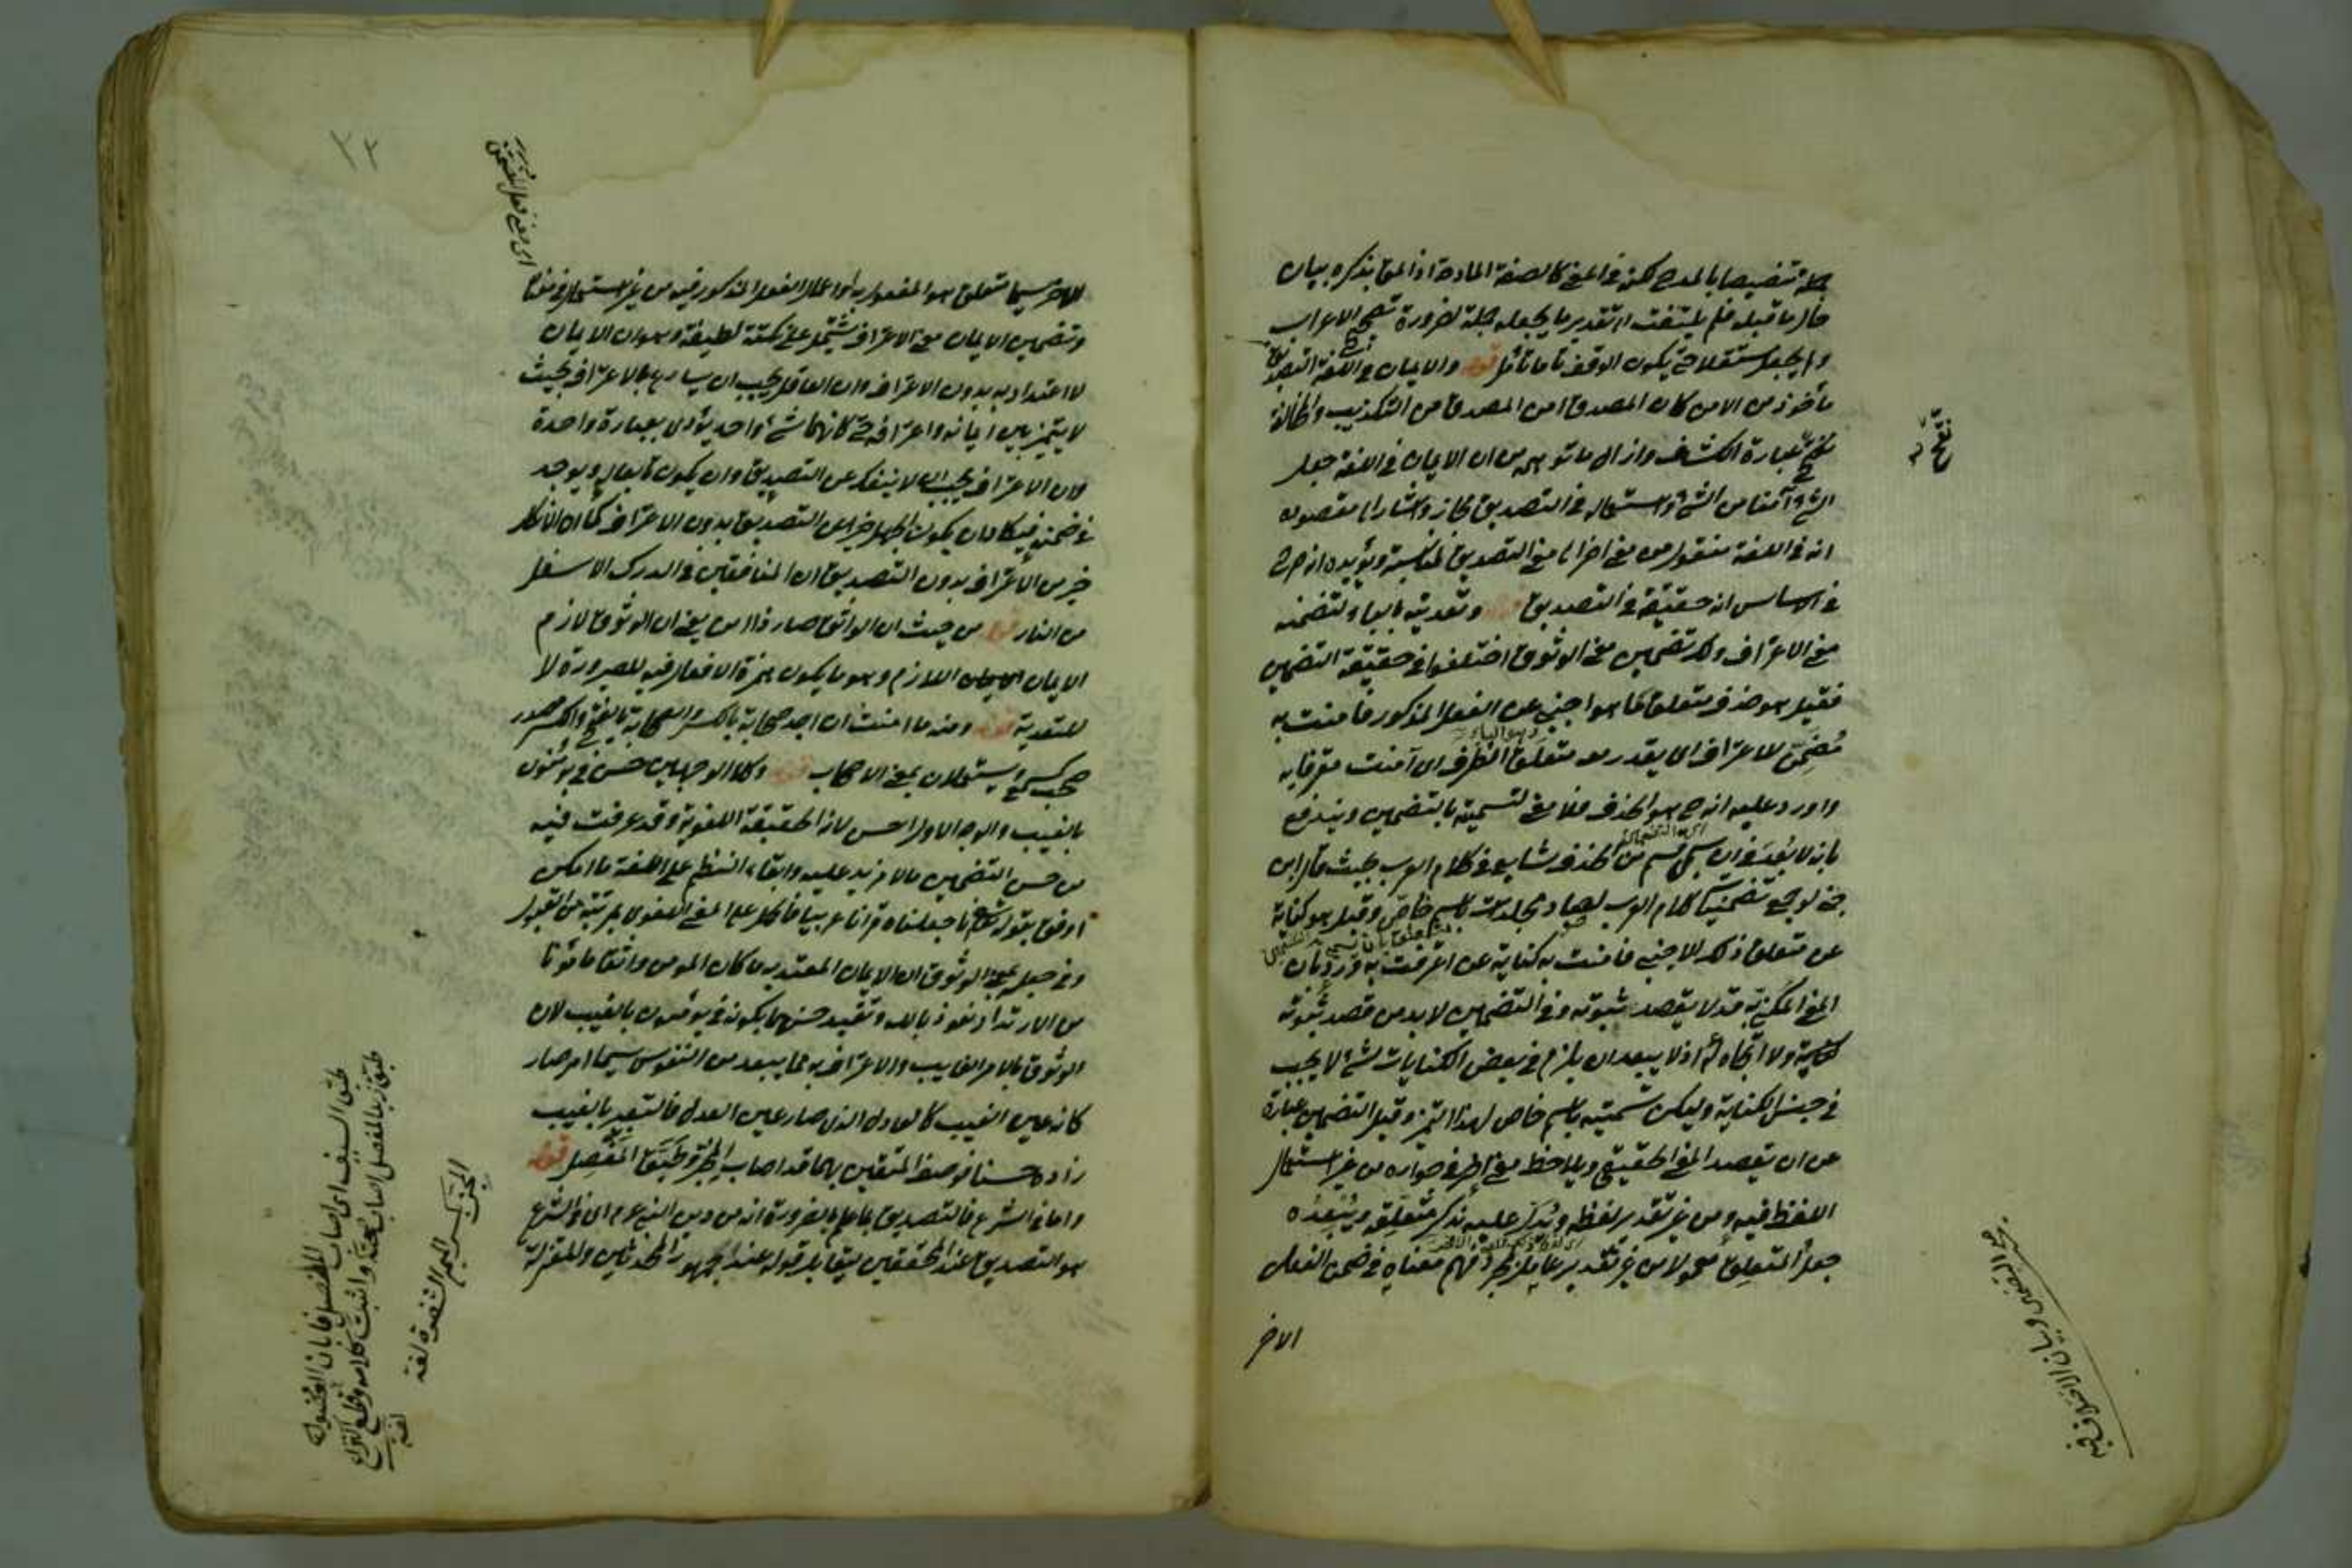 جملة تخصيصا بالمدح لكنه في المعنى كالصفة المادحة اذ المق بذكره بيان
حال ما قبله فلم يلتفت الى تقدير ما يجعله جملة لضرورة تصحيح الاعراب
ولم يجعل مستقلا حتى يكون الوقف تاما تأمل قوله والايمان في اللغة التصديق
مأخوذ من الامن كان المصدق امن المصدق من التكذيب والمخالفة
عبارة الكشاف وازال ما توهمه من ان الايمان في اللغة جعل
الشيء آمنا من الشيء واستعماله في التصديق مجاز واشار الى مقصوده
انه في اللغة منقول من معنى اخر الى معنى التصديق لمناسبة ويؤيده انه صرح
في الاساس انه حقيقة في التصديق قوله وتعديته بالباء لتضمنه
معنى الاعتراف ولك تضمين معنى الوثوق اختلفوا في حقيقة التضمين
فقيل هو حذف متعلق لما هو اجنبي عن الفعل المذكور فآمنت به
مُضَمَّن الاعتراف اي يقدر معه متعلق الظرف اي آمنت معترفا به
واورد عليه انه ح هو الحذف فلا معنى لتسميته بالتضمين ويندفع
بانه لا بُعْدَ في ان يسمى قسم من الحذف شايع في كلام العرب بحيث قال ابن
جني لو جمع تضمينات كلام العرب لصار مجلدات باسم خاص وقيل هو كناية
عن متعلق ذلك الاجنبي فآمنت به كناية عن اعترفت به وَرُدَّ بان
المعنى المكنى به قد لا يقصد ثبوته وفي التضمين لابد من قصد ثبوته
ولا اتجاه له اذ لا يبعد ان يلزم في بعض الكنايات شيء لا يجب
في جنس الكناية وليكن تسميته باسم خاص لهذا التميز وقيل التضمين عبارة
عن ان يقصد المعنى الحقيقي ويلاحظ معنى اخر في جواره من غير استعمال
اللفظ فيه ومن غير تقدير لفظه ويُدَلّ عليه بذكر مُتَعَلِّقِه ويُبَعِّدُه
جعلُ المتعلِّق معمولا من غير تقدير عامل بمجرد فهم معناه في ضمن الفعل
الاخر
الاخر سيما متعلق هو المفعول به او اعمال الفعل المذكور فيه من غير استعمال في معناه
وتضمين الايمان معنى الاعتراف يشتمل على نكتة لطيفة وهو ان الايمان
لا اعتداد به بدون الاعتراف وان العاقل يجب ان يسارع بالاعتراف بحيث
لا يتميز بين ايمانه واعترافه حتى كانهما شيء واحد يؤدى بعبارة واحدة
وان الاعتراف يجب ان لا ينفك عن التصديق وان يكون تابعا له ويوجد
في ضمنه فيكاد ان يكون الجهل خيرا من التصديق بدون الاعتراف كما ان الانكار
خير من الاعتراف بدون التصديق ان المنافقين في الدرك الاسفل
من النار قوله من حيث ان الواثق صار ذا امن يعني ان الوثوق لازم
الايمان اللازم وهو ما يكون همزة الافعال فيه للصيرورة لا
للتعدية قوله ومنه ما امنت ان اجد صحابة بالكسر والصحابة بالفتح والكسر مصدر
صحب كسمع ويستعملان بمعنى الاصحاب قوله وكلا الوجهين حسن في يؤمنون
بالغيب والوجه الاول احسن لانه الحقيقة اللغوية وقد عرفت فيه
من حسن التضمين ما لا مزيد عليه وابقاء النظم على اللغة ما امكن
اوفق بقوله تعالى انا جعلناه قرآنا عربيا فالحمل على المعنى اللغوي بمرتبة من القبول
وفي جعله بمعنى الوثوق ان الايمان المعتد به ما كان المومن واثقا مأمونا
من الارتداد نعوذ بالله وتقييد حسنهما بكونه في يؤمنون بالغيب لان
الوثوق بالامر الغايب والاعتراف به مما يبعد من النفوس سيما امر صار
كانه عين الغيب كالعادل الذي صار عين العدل فالتعبير بالغيب
زاده حسنا فوصف المتقين بهما قد اصاب المحزّ وطَبَّق المَفْصِل قوله
واما في الشرع فالتصديق بما علم بالضرورة انه من دين النبي عم اي في الشرع
هو التصديق عند المحققين يقابله قوله عند جمهور المحدثين والمعتزلة
طبق السيف اي اصاب المفصل فابان العضو
المحز بكسر الميم الشفرة لغة